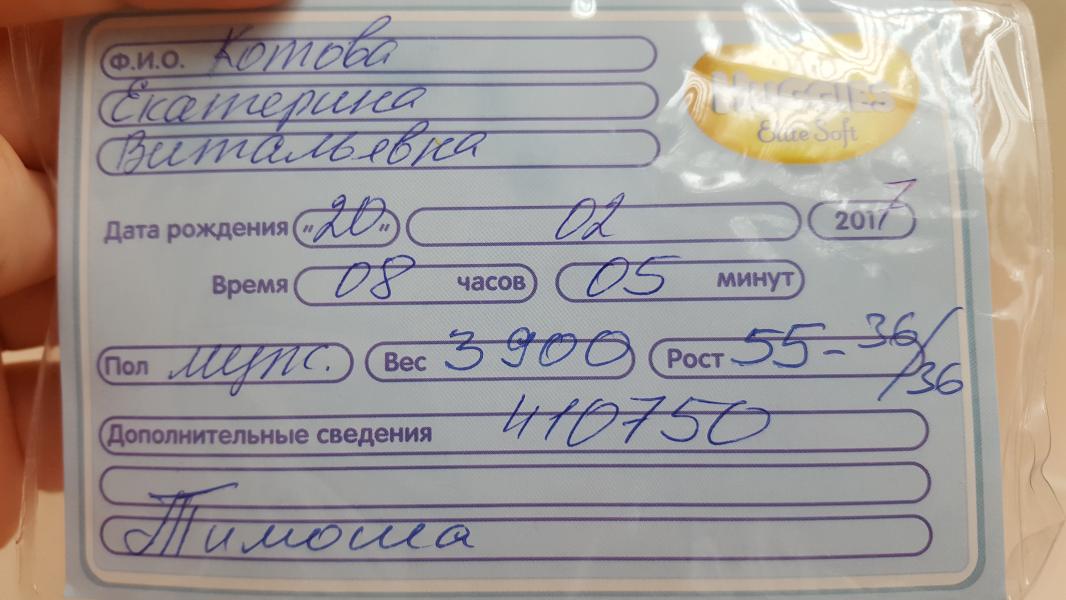 Ф.И.О. Котова
Екатерина
Витальевна
HUGGIES
Elite Soft
Дата рождения "20" 02 2017
Время 08 часов 05 минут
Пол муж. Вес 3900 Рост 55-36/36
Дополнительные сведения 410750
Тимоша